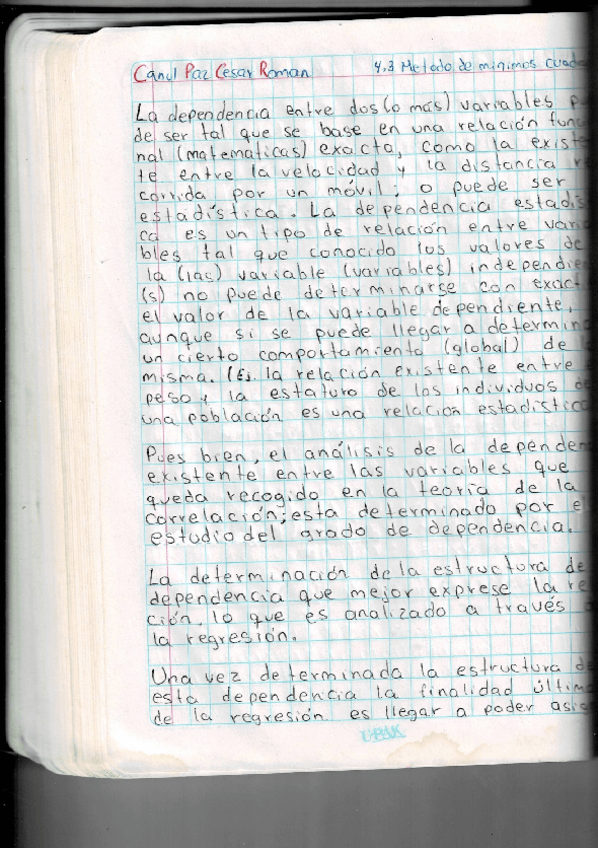 Canul Paz Cesar Roman 4.3 Metodo de minimos cuad
La dependencia entre dos (o mas) variables p
de ser tal que se base en una relación func
nal (matematicas) exacta, como la existe
te entre la velocidad y la distancia re
corrida por un móvil; o puede ser
estadística. La dependencia estadis
ca es un tipo de relación entre varia
bles tal que conocido los valores de
la (las) variable (variables) independie
(s) no puede determinarse con exact
el valor de la variable dependiente,
aunque si se puede llegar a determina
un cierto comportamiento (global) de l
misma. (Ej. la relación existente entre
peso y la estatura de los individuos de
una población es una relacion estadistica
Pues bien, el análisis de la dependen
existente entre las variables que
queda recogido en la teoría de la
correlación; esta determinado por el
estudio del grado de dependencia.
La determinación de la estructura de
dependencia que mejor exprese la re
ción, lo que es analizado a través
la regresión.
Una vez determinada la estructura de
esta dependencia la finalidad última
de la regresión es llegar a poder asig